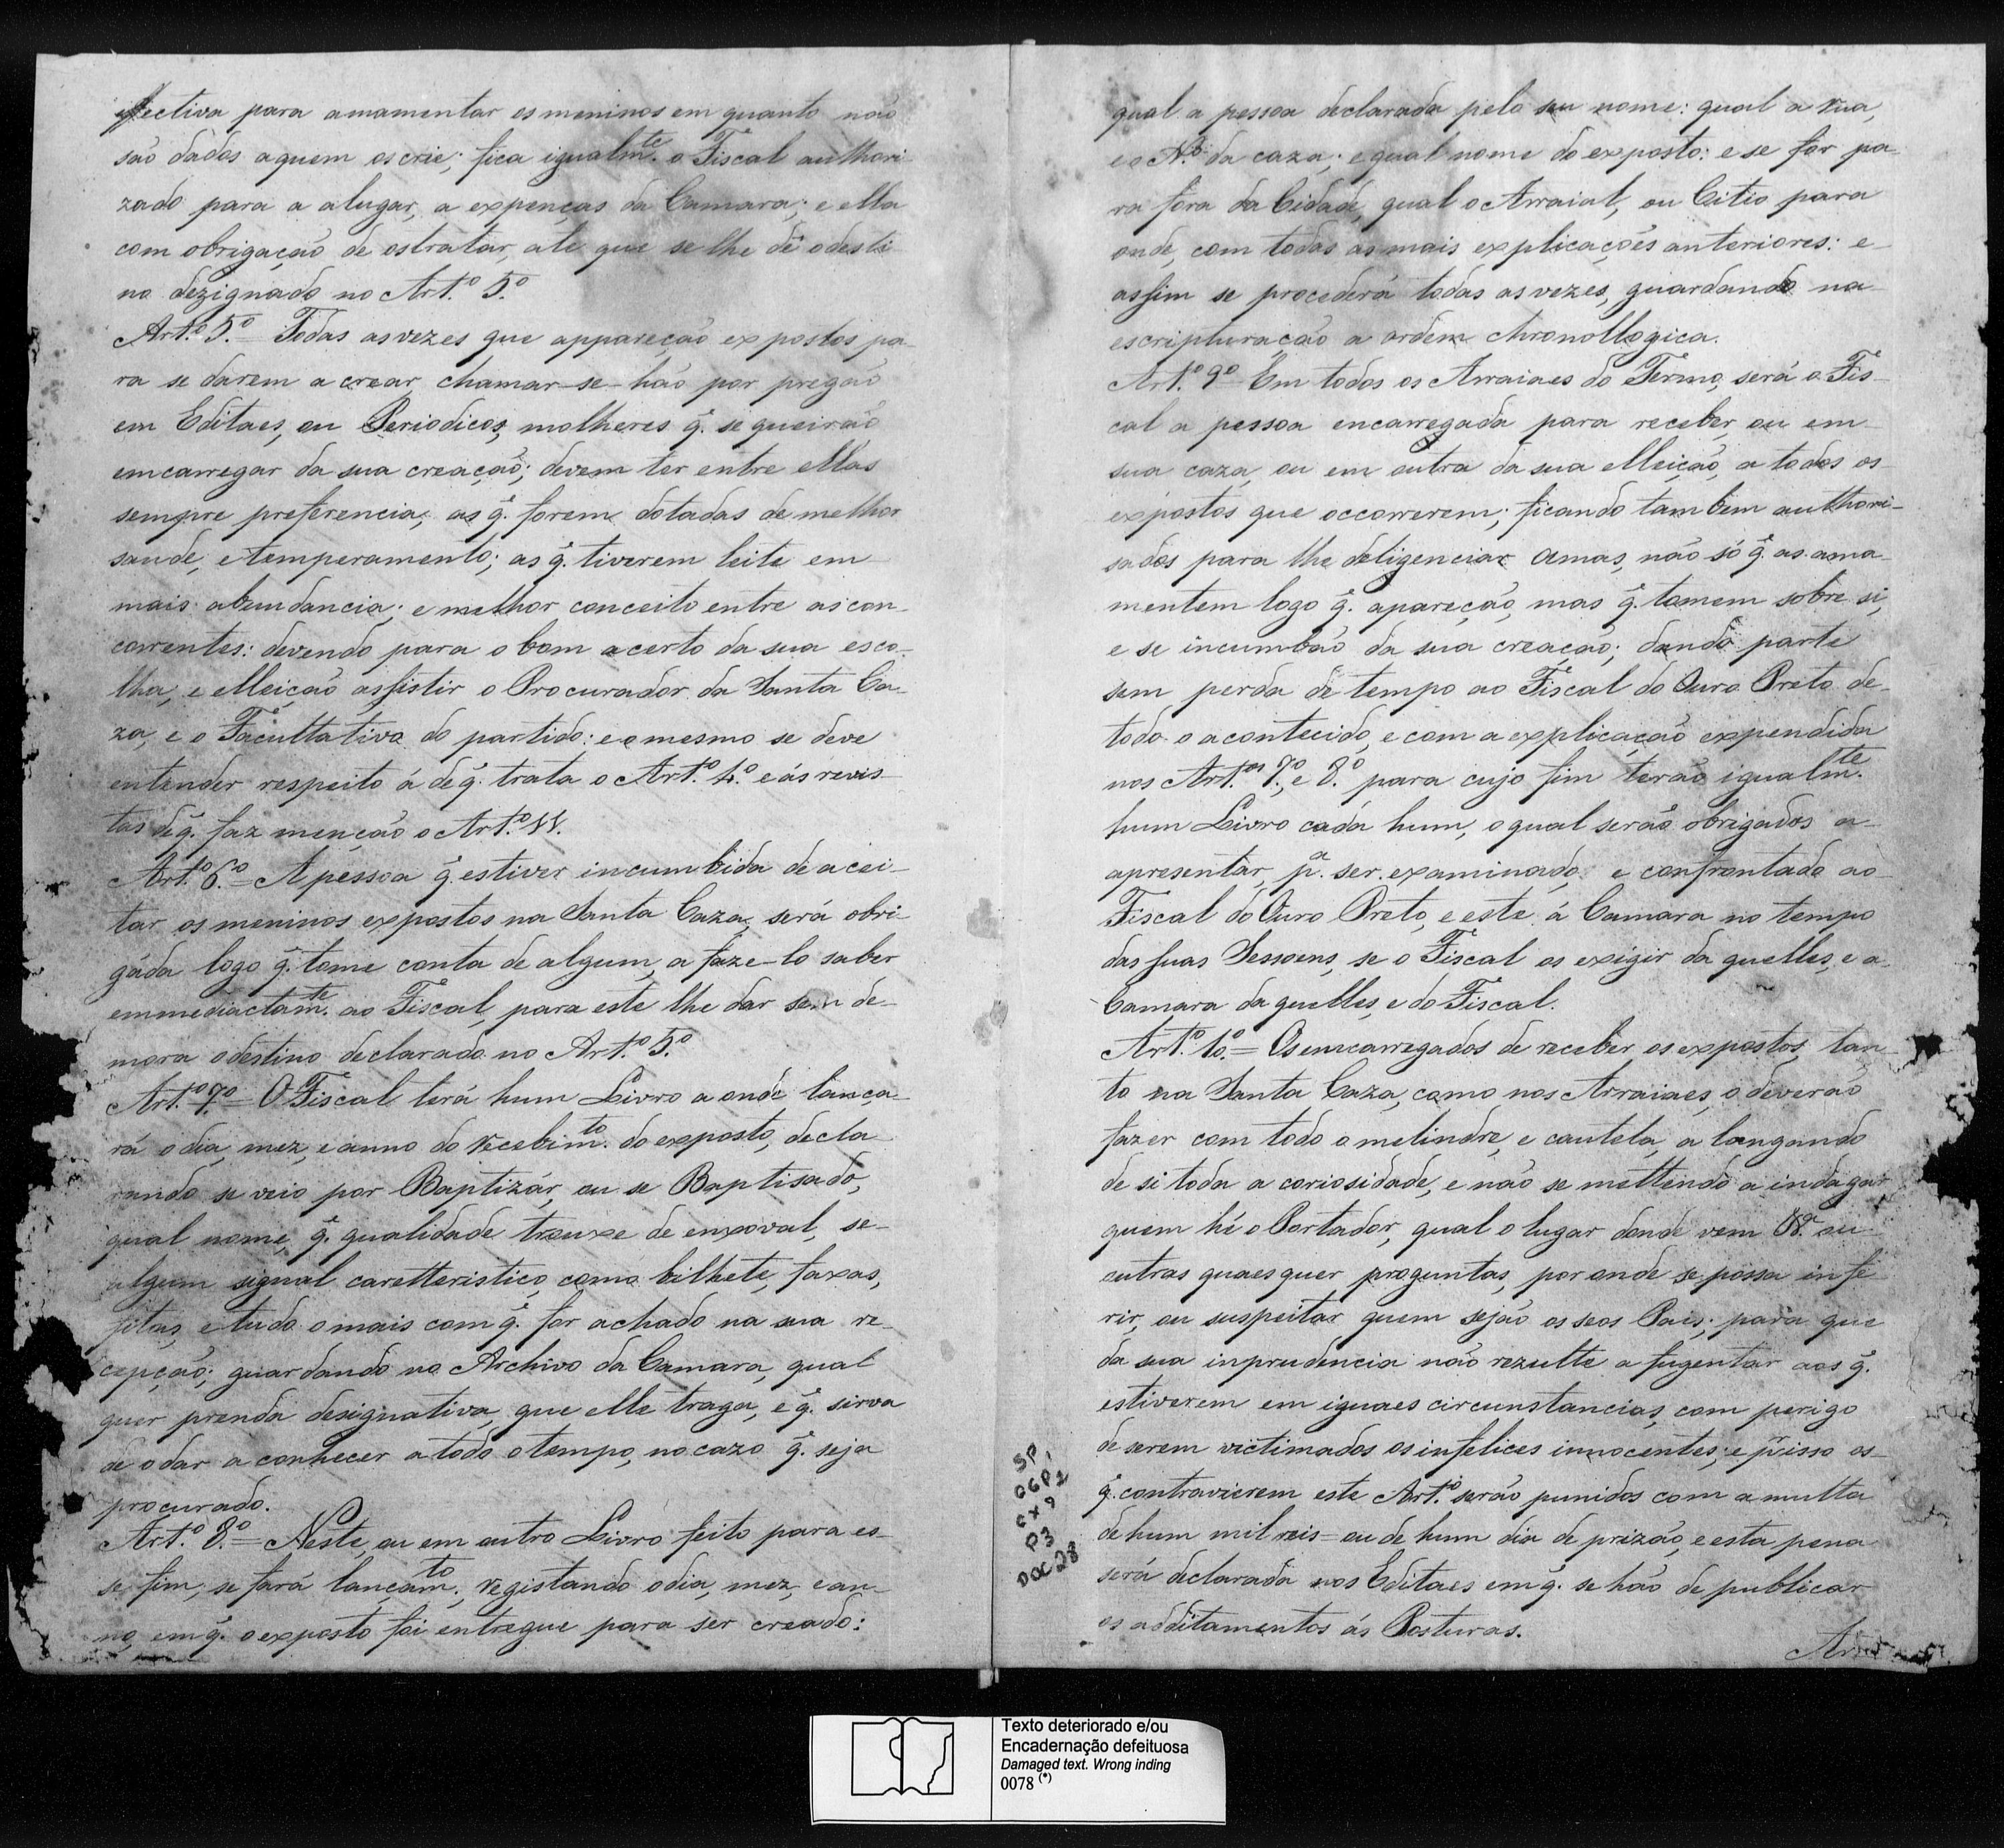 effectiva para amamentar os meninos em quanto não
são dados aquem os crie; fica igualmte. o Fiscal authori-
zado para a alugar, a expenças da Camara; e ella
com obrigação de os tratar, até que se lhe dê o desti
no dezignado no Art.º 5.º
Art.º 5.º = Todas as vezes que appareção expostos pa-
ra se darem a crear, chamar-se-hão por pregão
em Editaes, ou Periodicos, molheres q̃. se queirão
emcarregar da sua creação; devem ter entre ellas
sempre preferencia, as q̃. forem dotadas de melhor
saude, e temperamento; as q̃. tiverem leite em
mais abundancia; e melhor conceito entre as con-
correntes: devendo para o bom acerto da sua esco-
lha, e elleição assistir o Procurador da Santa Ca-
za, e o Facultativo do partido: e o mesmo se deve
entender respeito á de q̃. trata o Art.º 4.º e ás revis-
tas de q̃. faz menção o Art.º 11.
Art.º 6.º = A pessoa q̃. estiver incumbida de acei-
tar os meninos expostos na Santa Caza, será obri-
gada logo q̃. tome conta de algum, a faze-lo saber
emmediactamte. ao Fiscal, para este lhe dar sem de-
mora o destino declarado no Art.º 5.º
Art.º 7.º = O Fiscal terá hum Livro a onde lança-
rá o dia, mez, e anno do recebimto. do exposto, decla
rando se veio por Baptizár, ou se Baptisado,
qual nome, q̃. qualidade trouxe de enxoval, se-
algum signal caretteristico, como bilhete, faxas,
fitas, e tudo o mais com q̃. for achado na sua re-
cepção; guardando no Archivo da Camara, qual
quer prenda designativa, que elle traga, e q̃. sirva
de o dar a conhecer a todo o tempo, no cazo q̃. seja
procurado.
Art.º 8.º = Neste, ou em outro Livro feito para es-
se fim, se fará lançamto., registando o dia, mez, e an-
no, em q̃. o exposto foi entregue para ser creado:
qual a pessoa declarada pelo seu nome: qual a rua,
e o N.º da caza; e qual nome do exposto: e se for pa-
ra fora da Cidade, qual o Arraial, ou Citio para
onde, com todas as mais explicações anteriores: e
assim se procederá todas as vezes, guardando na
escripturação a ordem chronollogica.
Art.º 9.º Em todos os Arraiaes do Termo, será o Fis-
cal a pessoa encarregada para receber, ou em
sua caza, ou em outra da sua elleição, a todos os
expostos que occorrerem; ficando tambem authori-
sados para lhe deligenciar Amas, não só q̃. as ama-
mentem logo q̃. apareção, mas q̃. tomem sobre si,
e se incumbão da sua creação; dando parte
sem perda de tempo ao Fiscal do Ouro Preto de-
todo o acontecido, e com a explicação expendida
nos Art.os 7.º, e 8.º para cujo fim terão igualmte.
hum Livro cada hum, o qual serão obrigados a-
apresentar, pª. ser examinado, e confrontado ao
Fiscal do Ouro Preto, e este á Camara no tempo
das suas Sessoens, se o Fiscal os exigir daquelles, e a
Camara daquelles, e do Fiscal.
Art.º 10.º = Os emcarregados de receber os expostos, tan
to na Santa Caza, como nos Arraiaes, o deverão
fazer com todo o melindre, e cautela, alongando
de si toda a coriosidade, e não se mettendo a indagar
quem hé o Portador, qual o lugar donde vem ou
outras quaesquer proguntas, por onde se possa infe
rir, ou suspeitar quem sejão os seos Pais; para que
da sua inprudencia não rezulte afugentar aos q̃.
estiverem em iguaes circunstancias, com perigo
de serem victimados os infelices innocentes; e pr. isso os-
q̃. contravierem este Art.º serão punidos com a multa
de hum mil reis = ou de hum dia de prizão, e esta pena
será declarada nos Editaes em q̃. se hão de publicar
os additamentos ás Posturas.
SP
06P1
CX9
P3
DOC28
Texto deteriorado e/ou
Encadernação defeituosa
Damaged text. Wrong inding
0078 (*)